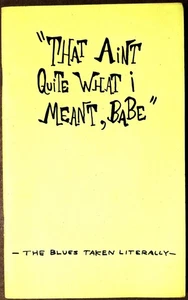 "THAT AiNT
QUiTE WHAT i
MEANT, BABE"
- THE BLUES TAKEN LITERALLY -